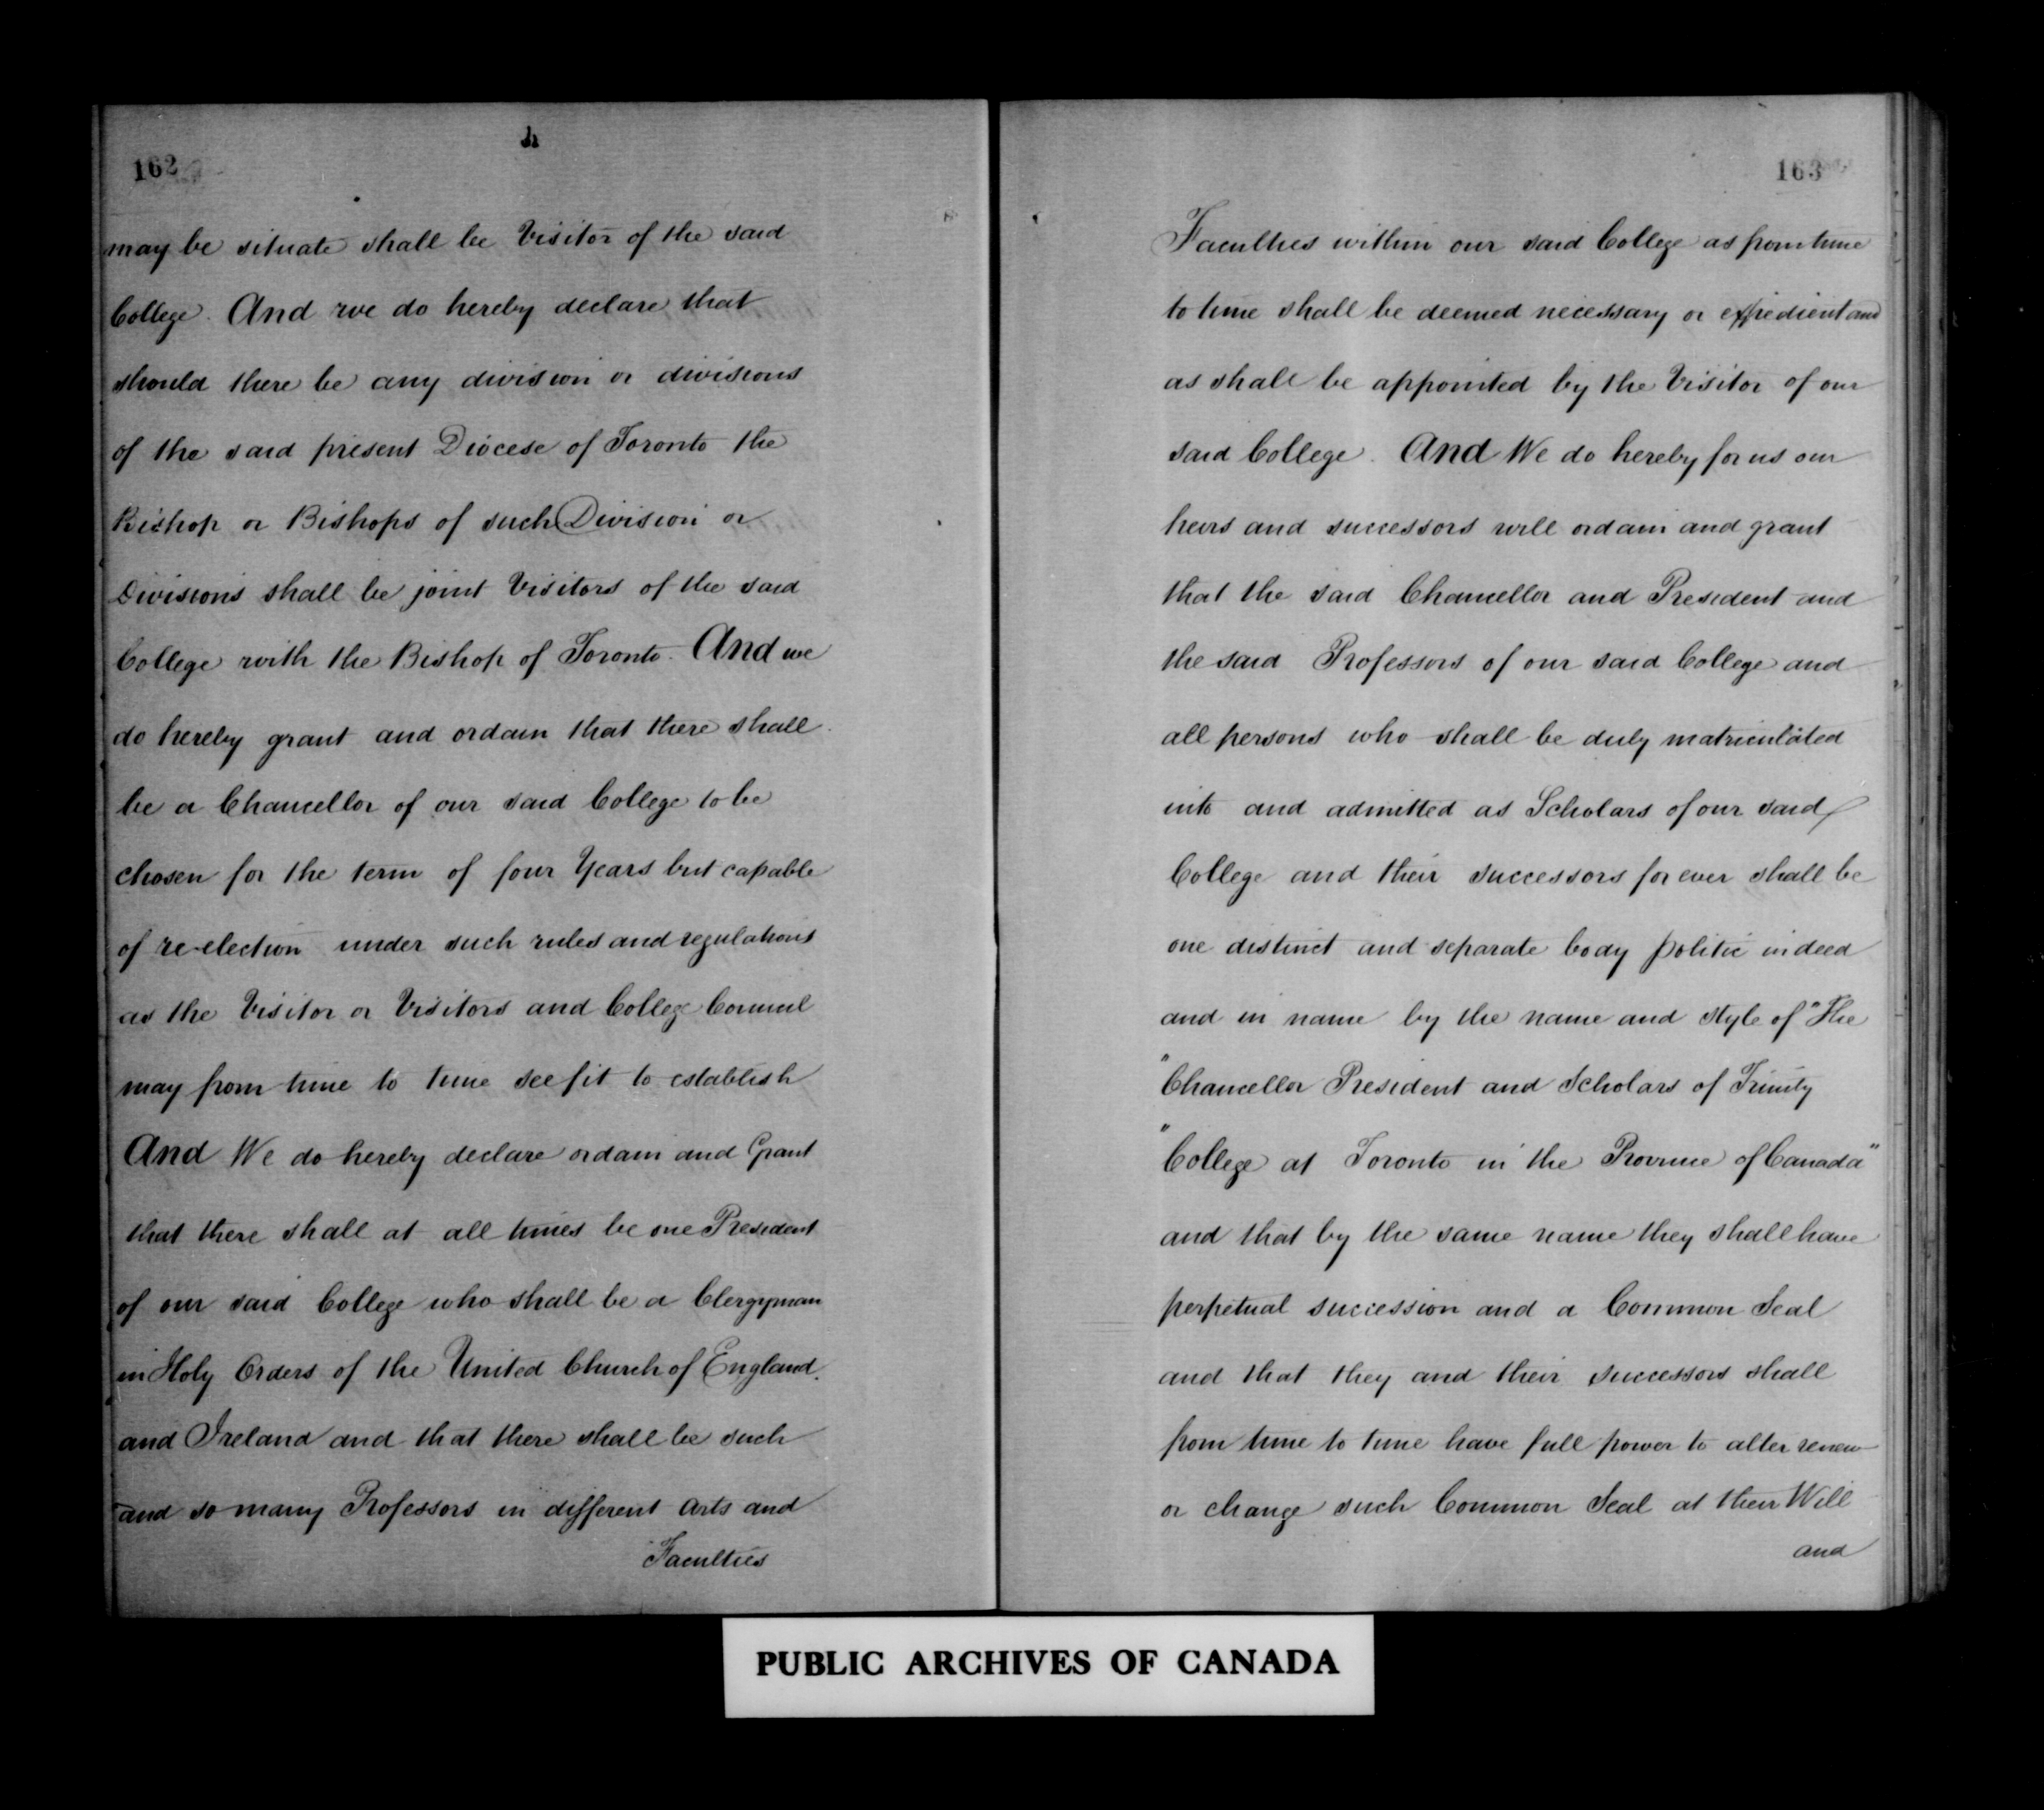 162
may be situate shall be Visitor of the said
College. And we do hereby declare that
should there be any division or divisions
of the said present Diocese of Toronto the
Bishop or Bishops of such Division or
Divisions shall be joint Visitors of the said
College with the Bishop of Toronto. And we
do hereby grant and ordain that there shall
be a Chancellor of our said College to be
chosen for the term of four Years but capable
of re-election under such rules and regulations
as the Visitor or Visitors and College Council
may from time to time see fit to establish
And We do hereby declare ordain and Grant
that there shall at all times be one President
of our said College who shall be a Clergyman
in Holy Orders of the United Church of England
and Ireland and that there shall be such
and so many Professors in different Arts and
Faculties
163
Faculties within our said College as from time
to time shall be deemed necessary or expedient and
as shall be appointed by the Visitor of our
said College. And We do hereby for us our
heirs and successors will ordain and grant
that the said Chancellor and President and
the said Professors of our said College and
all persons who shall be duly matriculated
into and admitted as Scholars of our said
College and their successors for ever shall be
one distinct and separate body politic indeed
and in name by the name and style of "The
"Chancellor President and Scholars of Trinity
"College at Toronto in the Province of Canada"
and that by the same name they shall have
perpetual succession and a Common Seal
and that they and their successors shall
from time to time have full power to alter renew
or change such Common Seal at their Will
and
PUBLIC ARCHIVES OF CANADA